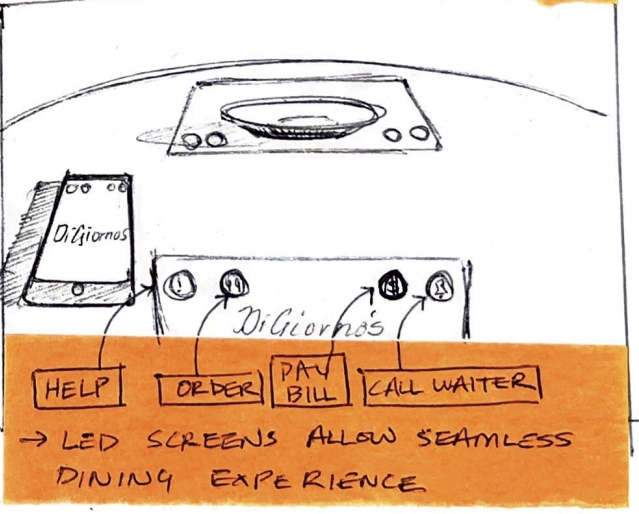 DiGiornos
! 44 $
DiGiorno's
HELP
ORDER
PAY
BILL
CALL WAITER
→ LED SCREENS ALLOW SEAMLESS
DINING EXPERIENCE